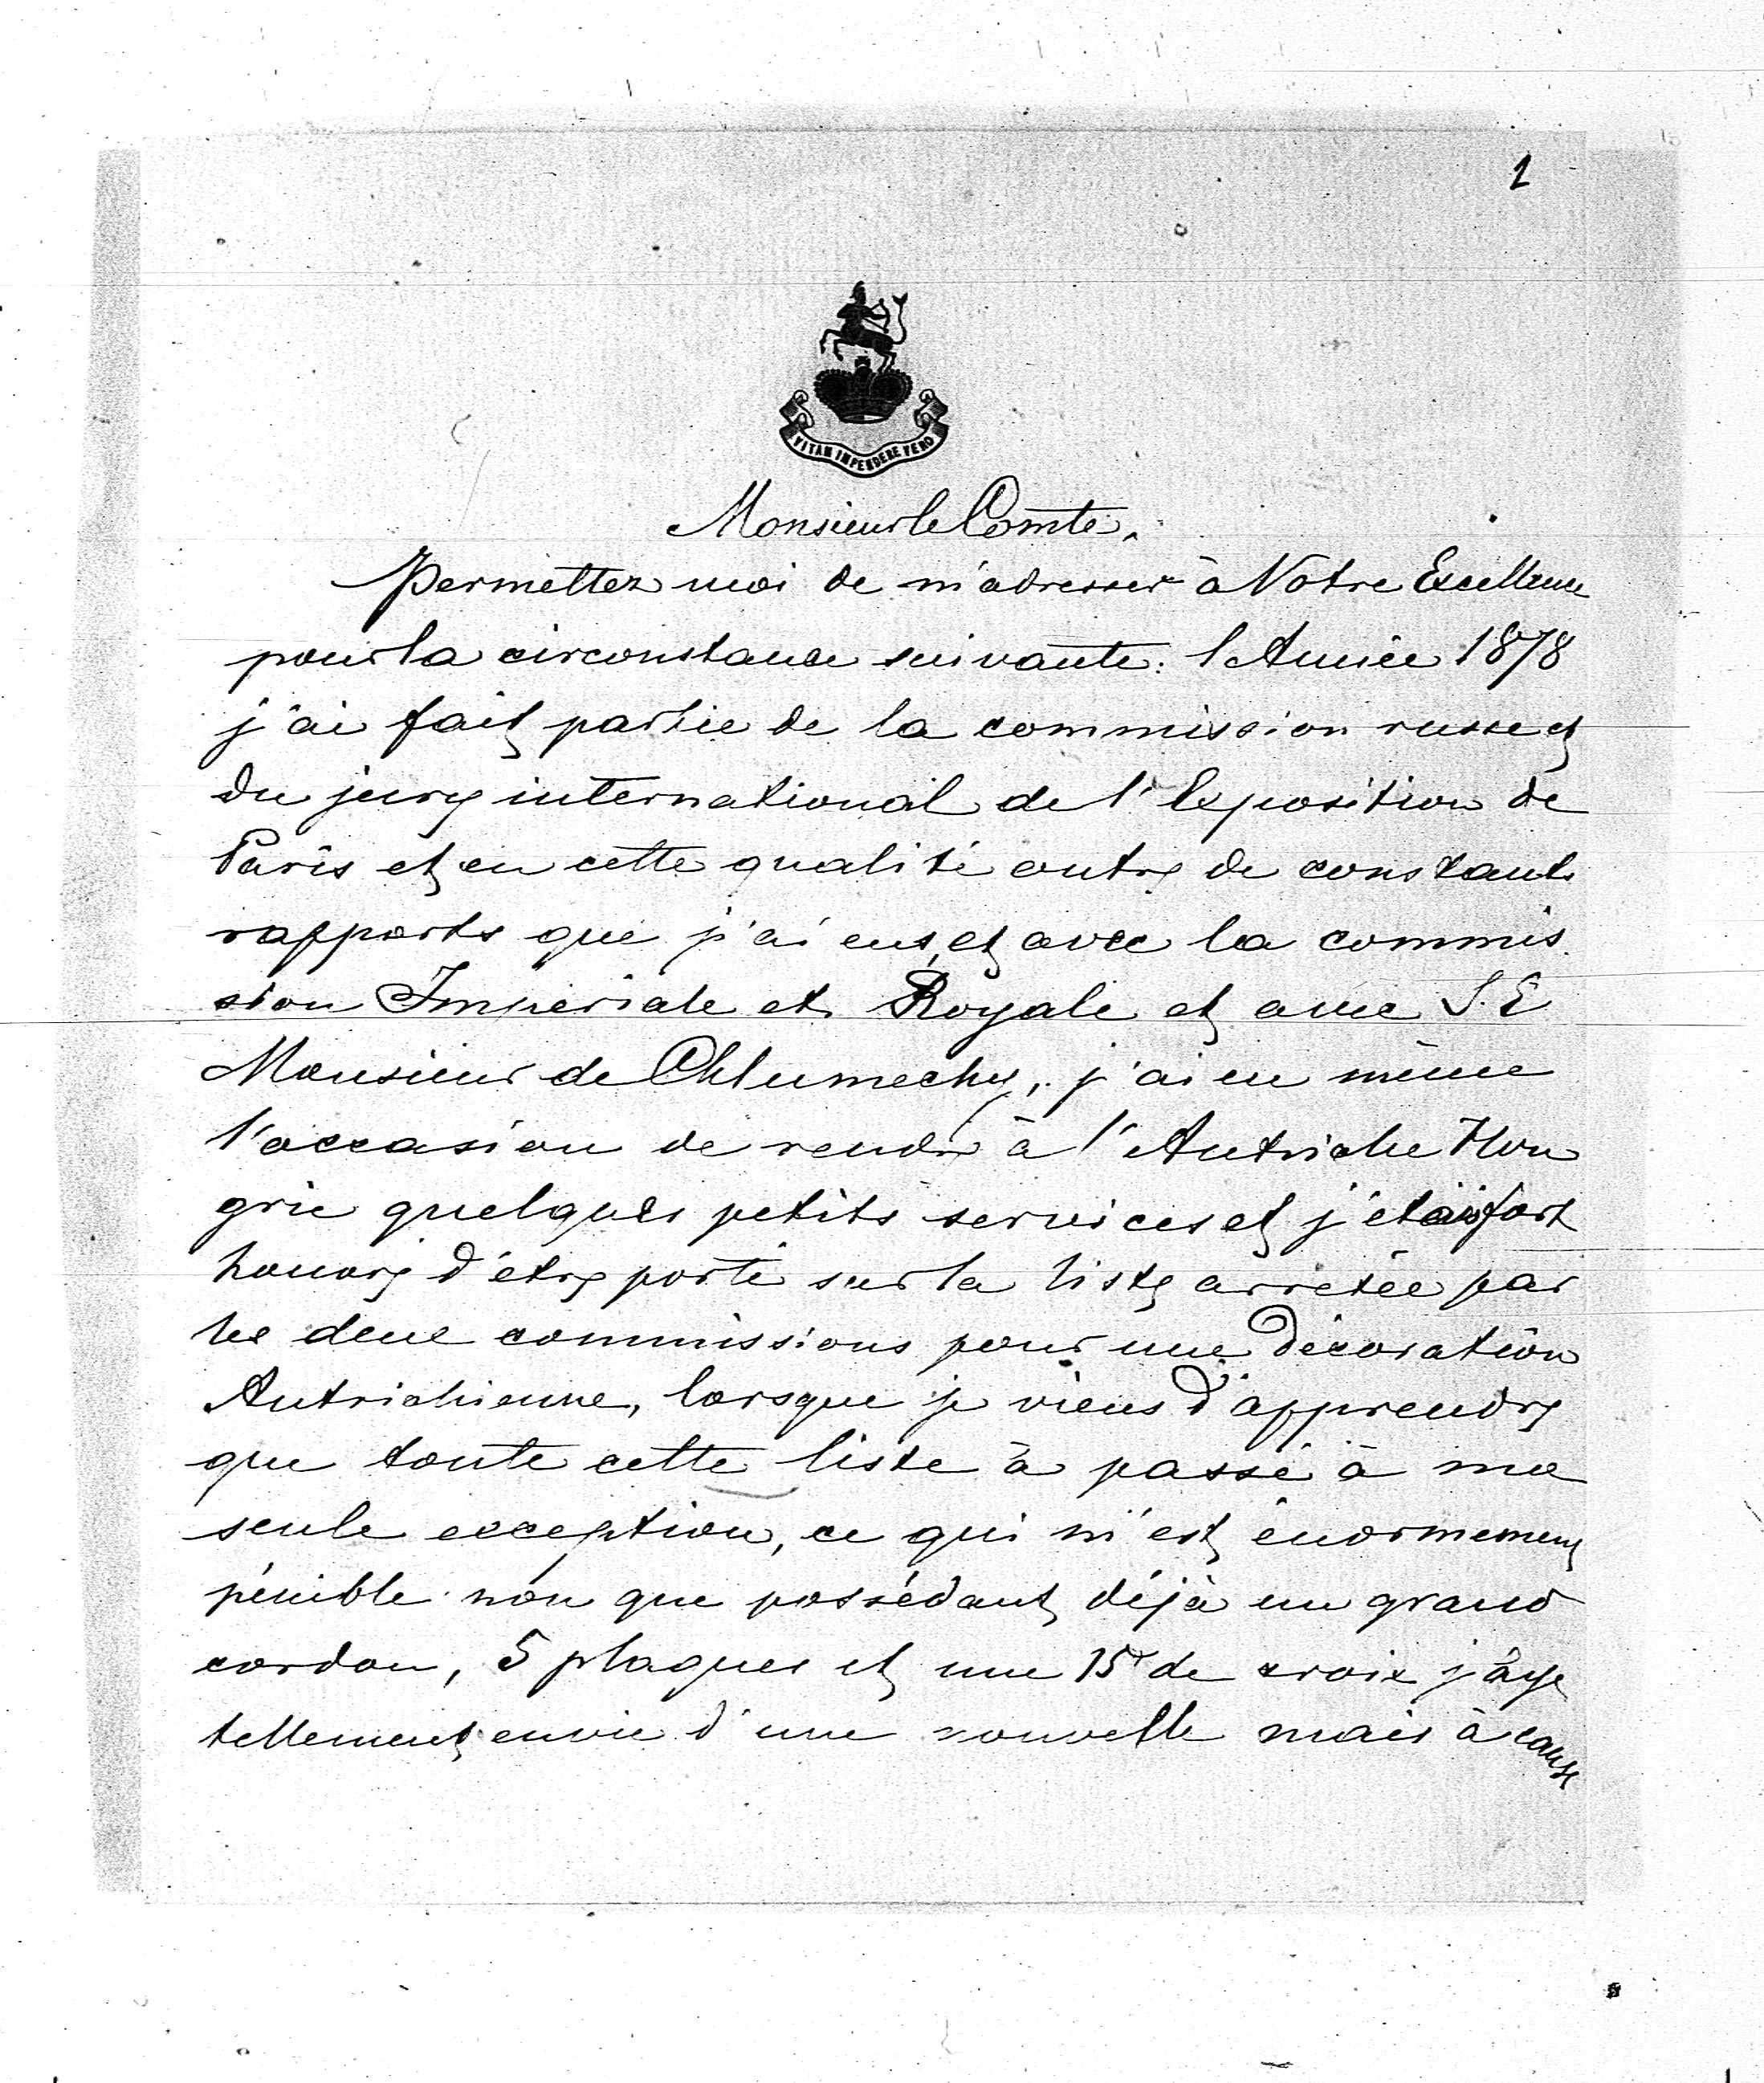 1
VITAM IMPENDERE VERO
Monsieur le Comte,
Permettez moi de m'adresser à Votre Excellence
pour la circonstance suivante: l'Année 1878
j'ai fait partie de la commission russe et
du jury international de l'Exposition de
Paris et en cette qualité outre de constants
rapports que j'ai eus et avec la commis
sion Imperiale et Royale et avec S. E
Monsieur de Chlumecky, j'ai eu même
l'occasion de rendre à l'Autriche Hon
grie quelques petits services et j'étais fort
honoré d'être porté sur la liste arretée par
les deux commissions pour une décoration
Autrichienne, lorsque je viens d'apprendre
que toute cette liste à passé à ma
seule exception, ce qui m'est énormement
pénible non que possédant déjà un grand
cordon, 5 plaques et une 15e de croix j'aye
tellement envie d'une nouvelle mais à cause